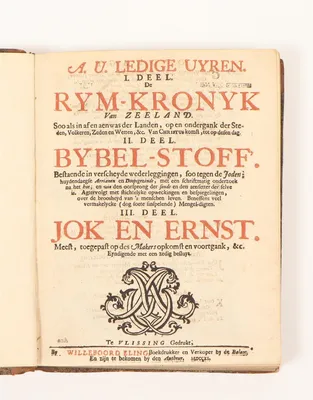 A. U. LEDIGE UYREN.
I. DEEL.
De
RYM-KRONYK
Van ZEELAND.
Soo als in af en aenwas der Landen, op en ondergank der Ste-
den, Volkeren, Zeden en Wetten, &c. Van Cæsars komst, tot op desen dag.
II. DEEL.
BYBEL-STOFF.
Bestaende in verscheyde wederleggingen, soo tegen de Joden,
huydendaegse Arrianen en Dooopsgesinde, met een schriftmatig ondersoek
en het hoe, en uit den oorsprong der sonde en den aenstoker der selve
is. Agtervolgt met stichtelyke opweckingen en bespiegelingen,
over de broosheyd van 's menschen leven. Beneffens veel
vermakelycke (dog soute sinspelende) Mengel-digten.
III. DEEL.
JOK EN ERNST.
Meest, toegepast op des Makers opkomst en voortgank, &c.
Eyndigende met een zedig besluyt.
Te VLISSING Gedrukt.
By WILLEBOORD ELING Boekdrukker en Verkoper by de Balans,
En zijn te bekomen by den Autheur,